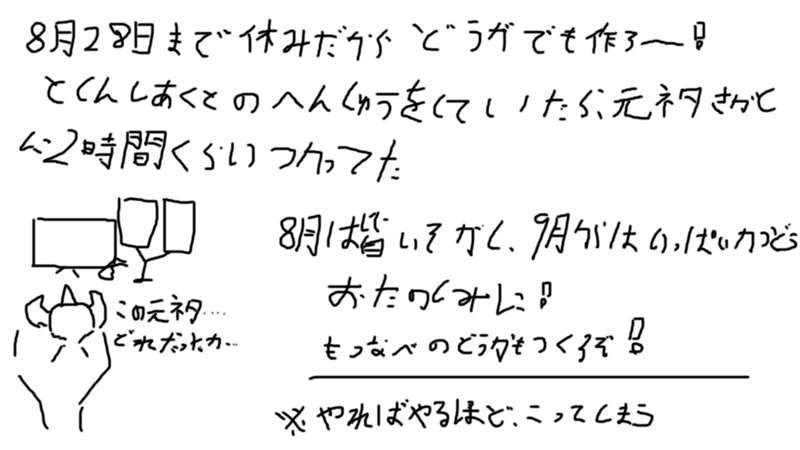 8月28日まで休みだから どうがでも作ろ〜!
とくんしあくとのへんしゅうをしていたら、元ネタさがと
に2時間くらいつかってた
8月は皆いそがし、9月からはいっぱいかつどう
おたのしみに!
この元ネタ....
どれだったか..
もつなべのどうがもつくるぞ!
※やればやるほど、こってしまう